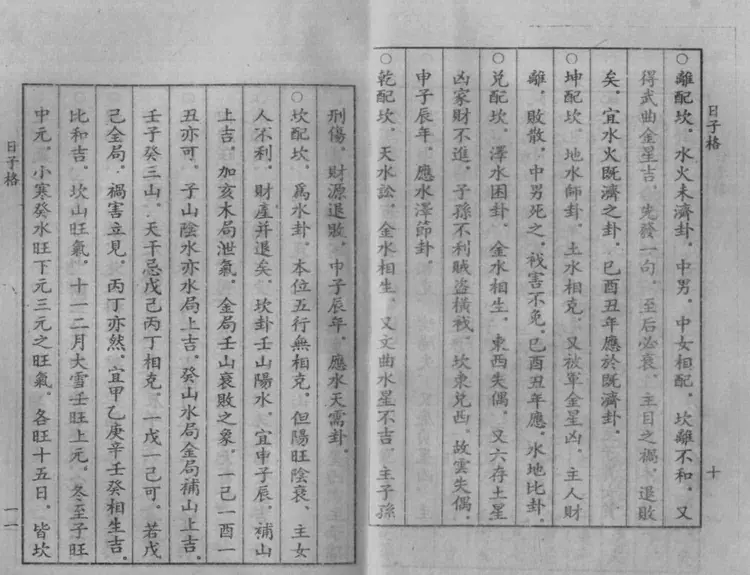 日子格
十
○離配坎。水火未濟卦。中男。中女相配。坎離不和。又
得武曲金星吉。先發一旬。至后必衰。主目之禍。退敗
矣。宜水火既濟之卦。巳酉丑年應於既濟卦。
○坤配坎。地水師卦。土水相克。又被軍金星凶。主人財
離。敗散。中男死之。戕害不免。巳酉丑年應。水地比卦。
○兑配坎。澤水困卦。金水相生。東西失偶。又六存土星
凶家財不進。子孫不利賊盗橫戕。坎東兑西。故雲失偶。
申子辰年。應水澤節卦。
○乾配坎。天水訟。金水相生。又文曲水星不吉。主子孫
刑傷。財源退敗。申子辰年。應水天需卦。
○坎配坎。爲水卦。本位五行無相克。但陽旺陰衰。主女
人不利。財產并退矣。坎卦壬山陽水。宜申子辰。補山
上吉。加亥木局泄氣。金局壬山衰敗之象。一己一酉一
丑亦可。子山陰水亦水局上吉。癸山水局金局補山上吉。
壬子癸三山。天干忌戊己丙丁相克。一戊一己可。若戊
己全局。禍害立見。丙丁亦然。宜甲乙庚辛壬癸相生吉。
○比和吉。坎山旺氣。十一二月大雪壬旺上元。冬至子旺
中元。小寒癸水旺下元三元之旺氣。各旺十五日。皆坎
日子格
一一